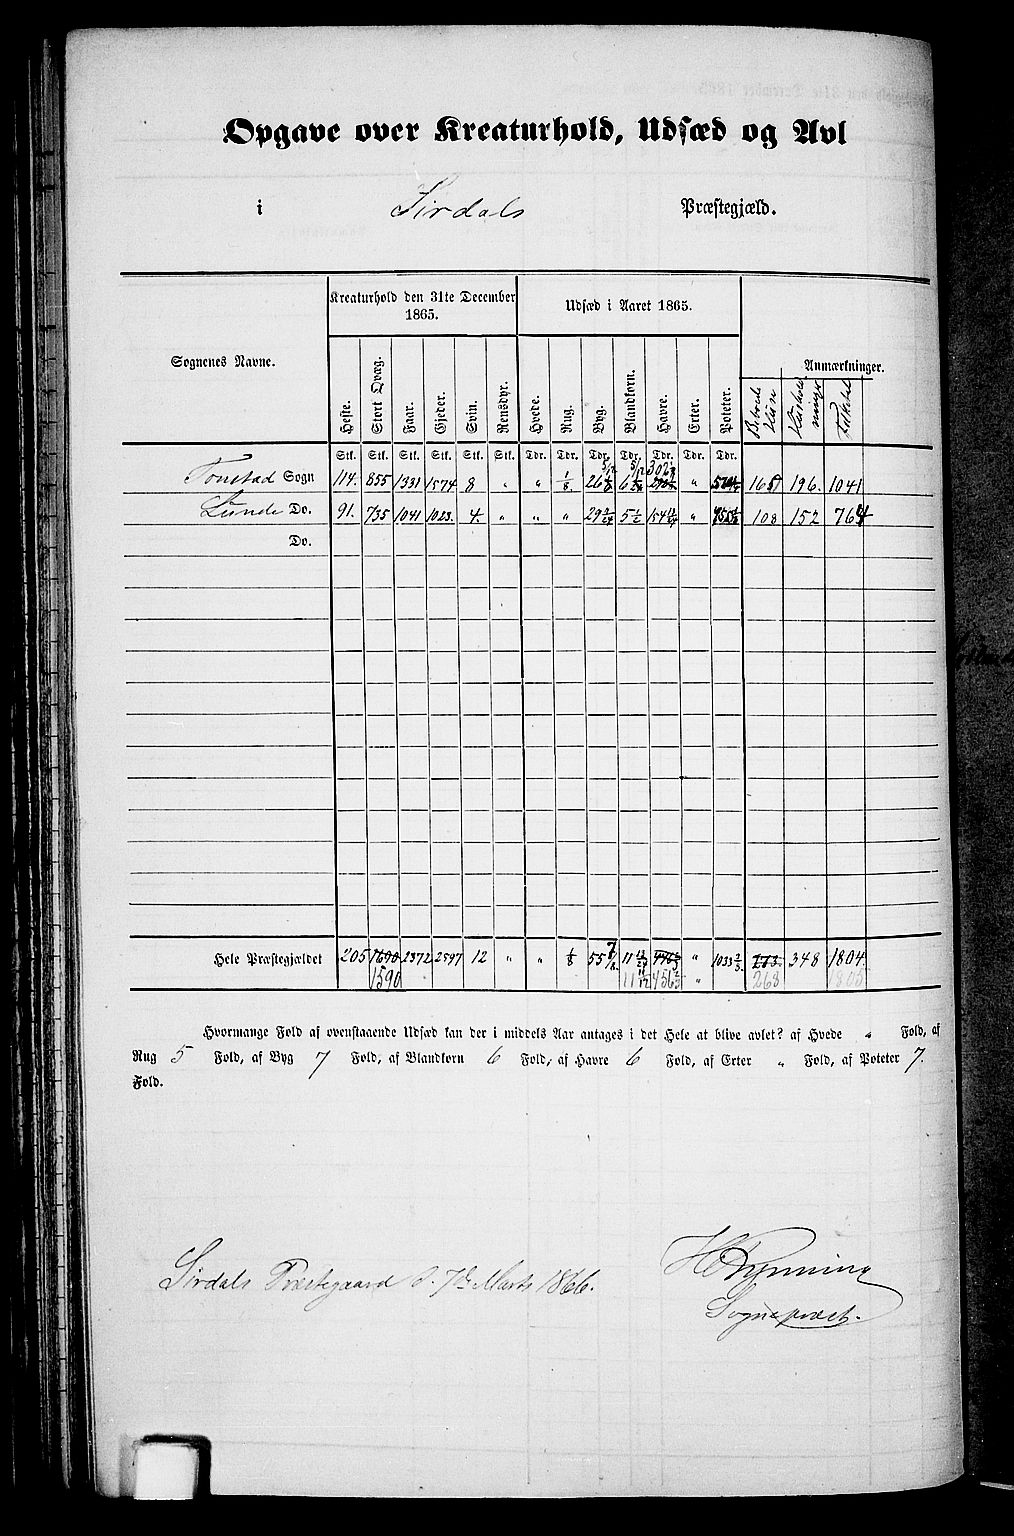 Opgave over Kreaturhold, Udsæd og Avl
i Sirdals Præstegjæld.
Sognenes Navne. Kreaturhold den 31te December 1865. Udsæd i Aaret 1865. Anmærkninger.
Heste. Stort Qvæg. Faar. Gjeder. Svin. Rensdyr. Hvede. Rug. Byg. Blandkorn. Havre. Erter. Poteter. Beboede Huse Hushold-ninger Folketal
Stk. Stk. Stk. Stk. Stk. Stk. Tdr. Tdr. Tdr. Tdr. Tdr. Tdr. Tdr.
Tonstad Sogn 114. 855 1331 1574 8 " " 1/8. 26 6 " 196. 1041
Lunde Do. 91. 735 1041 1023. 4. " " " 29 5 1/2 " 108 152 764
Do.
Hele Præstegjældet 205 1690 2372 2597 12 " " 1/8 55 11 " 1033 2/3 273. 348 1804.
1590 11 11/12 456 2/3 " 268 1805
Hvormange Fold af ovenstaaende Udsæd kan der i middels Aar antages i det Hele at blive avlet? af Hvede " Fold, af
Rug 5 Fold, af Byg 7 Fold, af Blandkorn 6 Fold, af Havre 6 Fold, af Erter " Fold, af Poteter 7.
Fold.
Sirdals Præstegaard d. 7de Marts 1866.
Sognepræst.